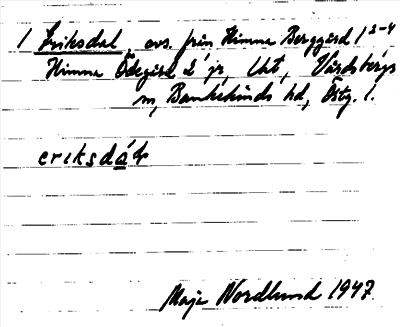 1 Eriksdal, avs. från Himna Berggård 1 2-4
Himna Ödegård 2 jr, lht, Vårdsbergs
sn, Bankekinds hd, Östg. l.
eriksdál
Maja Nordlund 1947.